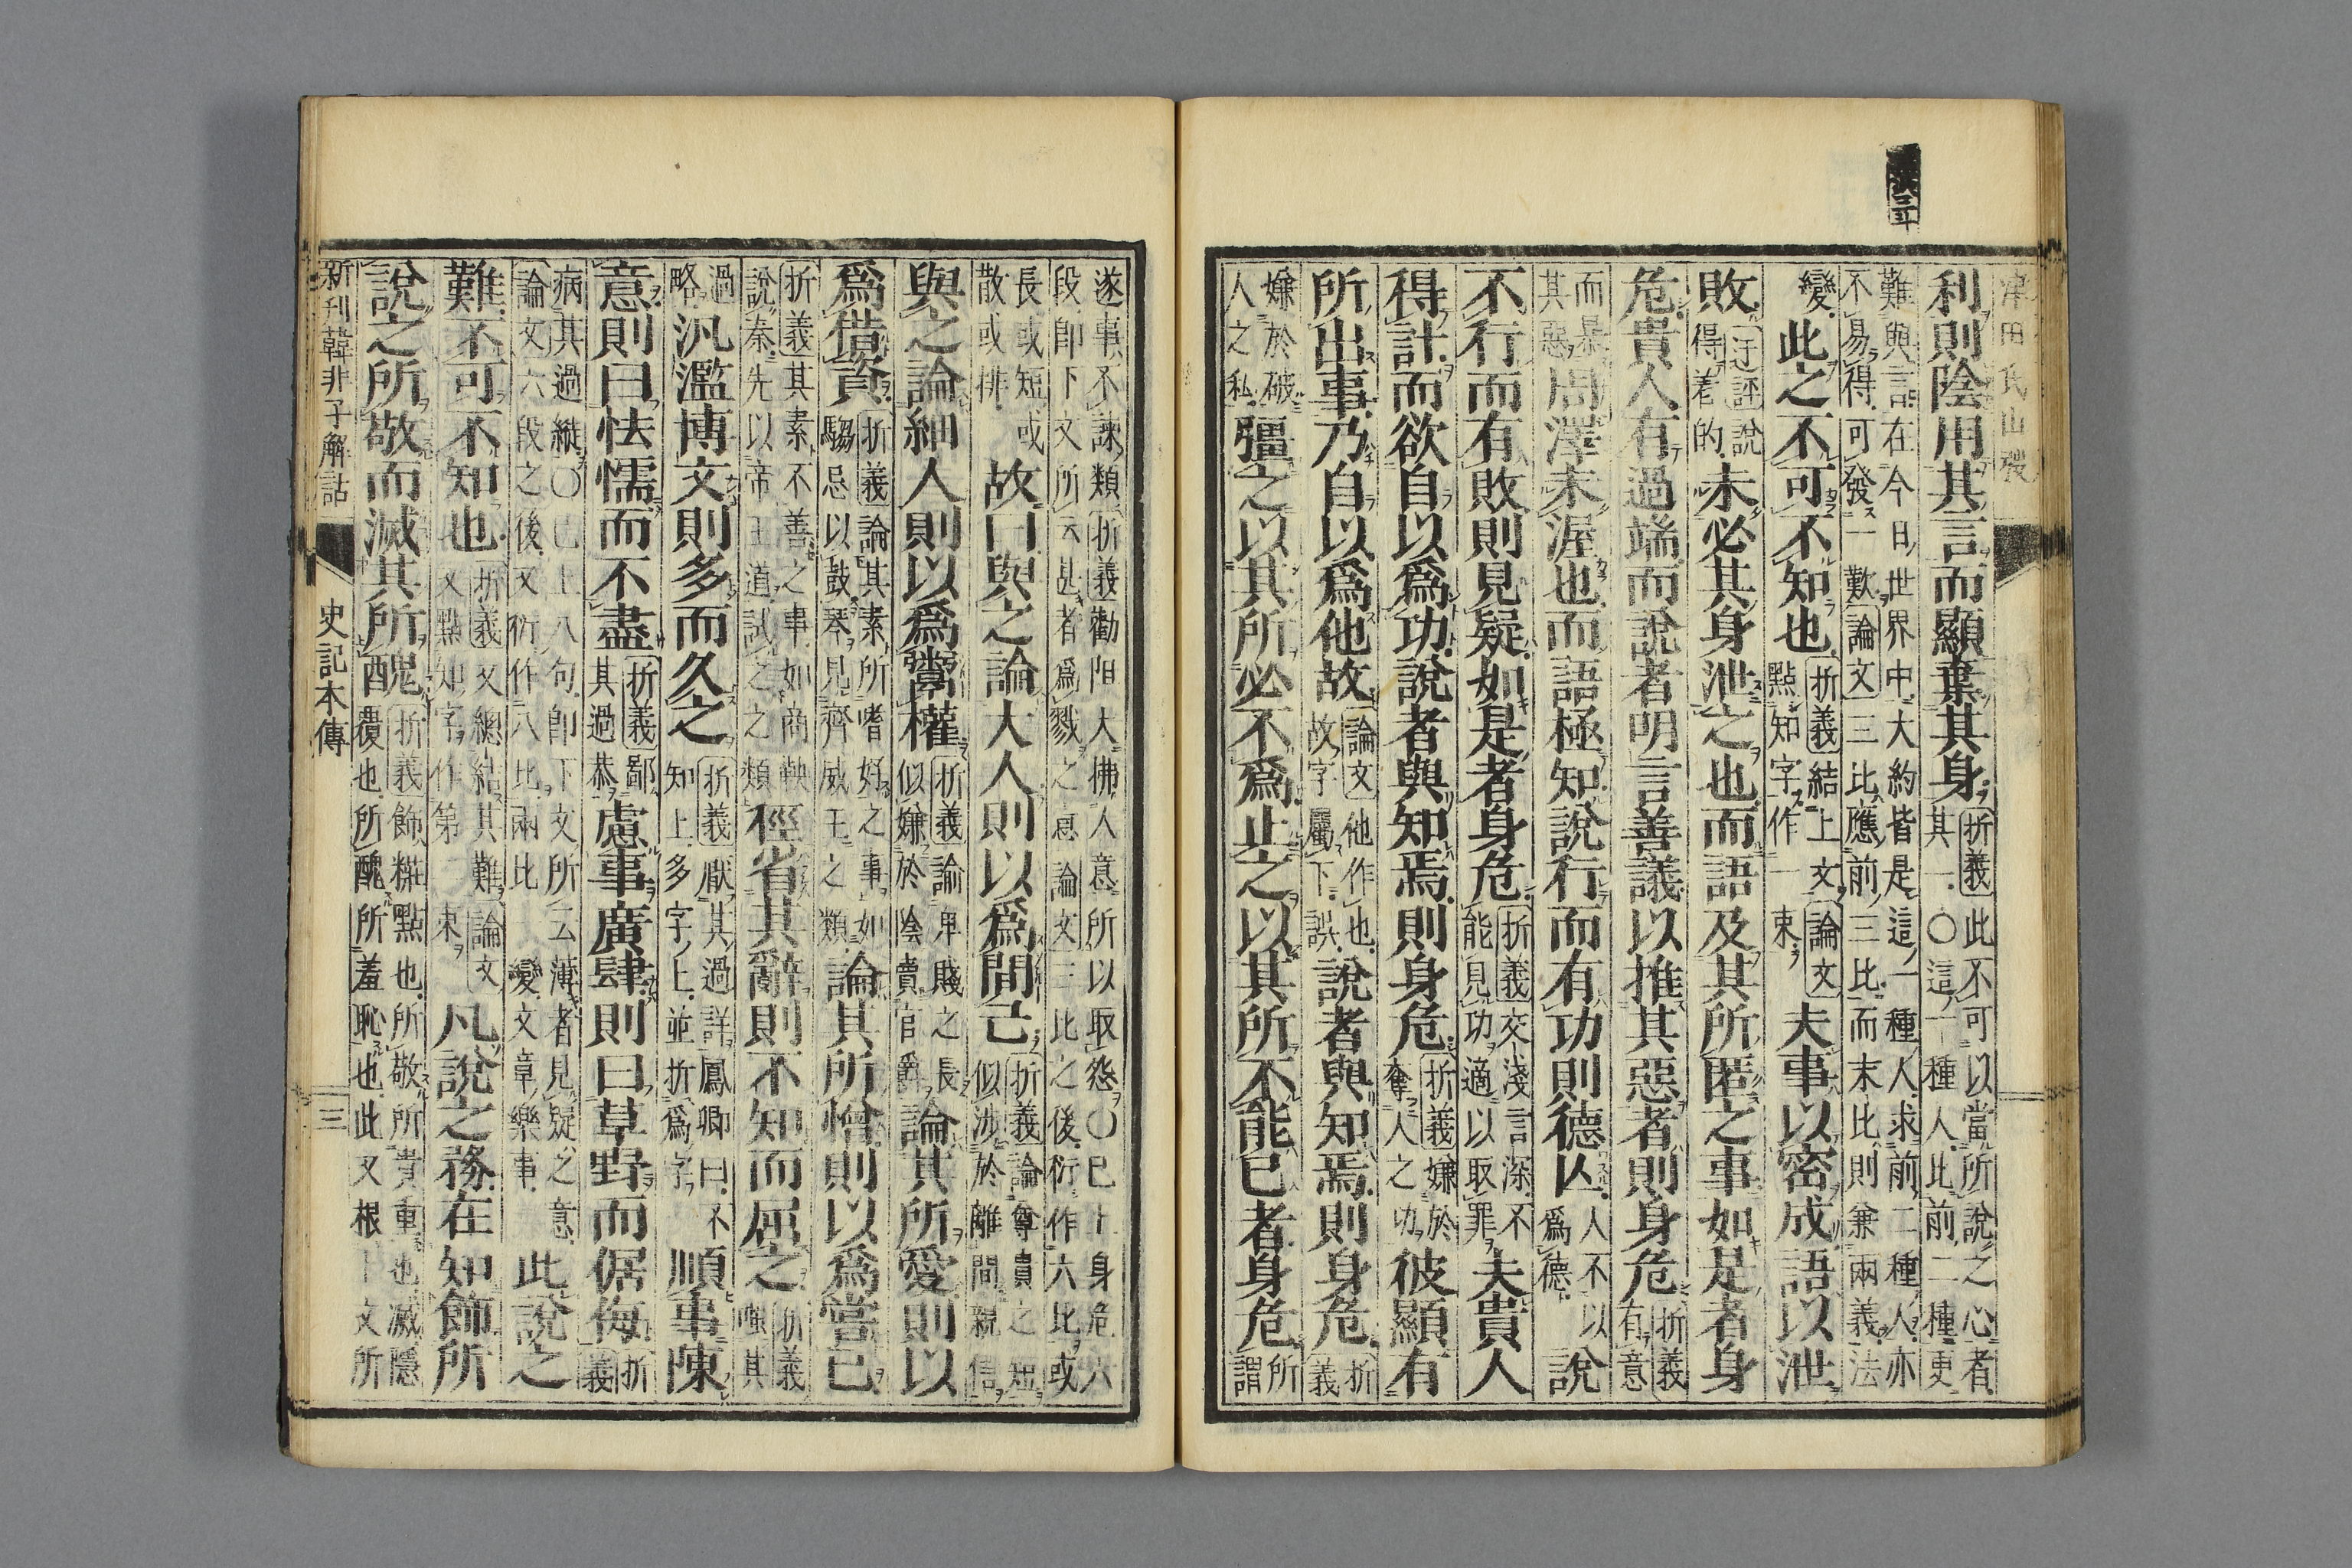 利則陰用其言而顯棄其身折義此不可以當所說之心者其一〇這一種人比前二種更
難與言在今日世界中大約皆是這一種人求前二種人亦不易得可發一歎論文三比應前三比而末比則兼兩義法
變此之不可不知也折義結上文論文點知字作一束夫事以密成語以泄
敗迂評說得着的未必其身泄之也而語及其所匿之事如是者身
危貴人有過端而說者明言善議以推其惡者則身危折義有意
而暴其惡周澤未渥也而語極知說行而有功則德亾人不以爲德說
不行而有敗則見疑如是者身危折義交淺言深不能見功適以取罪夫貴人
得計而欲自以爲功說者與知焉則身危折義嫌於奪人之功彼顯有
所出事乃自以爲他故論文他作也故字屬下誤說者與知焉則身危折義
嫌於破人之私彊之以其所必不爲止之以其所不能已者身危所謂
遂事不諫類折義勸阻大拂人意所以取怨〇已上身危六段卽下文所云甚者爲戮之意論文三比之後衍作六比或
長或短或散或排故曰與之論大人則以爲間己折義論尊貴之短似涉於離間親信
與之論細人則以爲鬻權折義論卑賤之長似嫌於陰賣官爵論其所愛則以
爲借資折義論其素所嗜好之事如騶忌以鼓琴見齊威王之類論其所憎則以爲嘗己
折義其素不善之事如商鞅說秦先以帝王道試之之類徑省其辭則不知而屈之折義嗤其
過略汎濫博文則多而久之折義厭其過詳鳳卿曰不知上多字上並折爲字順事陳
意則曰怯懦而不盡折義鄙其過恭慮事廣肆則曰草野而倨侮折義
病其過縱〇已上八句卽下文所云薄者見疑之意論文六段之後又衍作八比兩比變文章樂事此說之
難不可不知也折義又總結其難論文又點知字作第二束凡說之務在知飾所
說之所敬而滅其所醜折義飾糚點也所敬所貴重也滅隱覆也所醜所羞恥也此又根下文所
新刊韓非子解詁 史記本傳 三